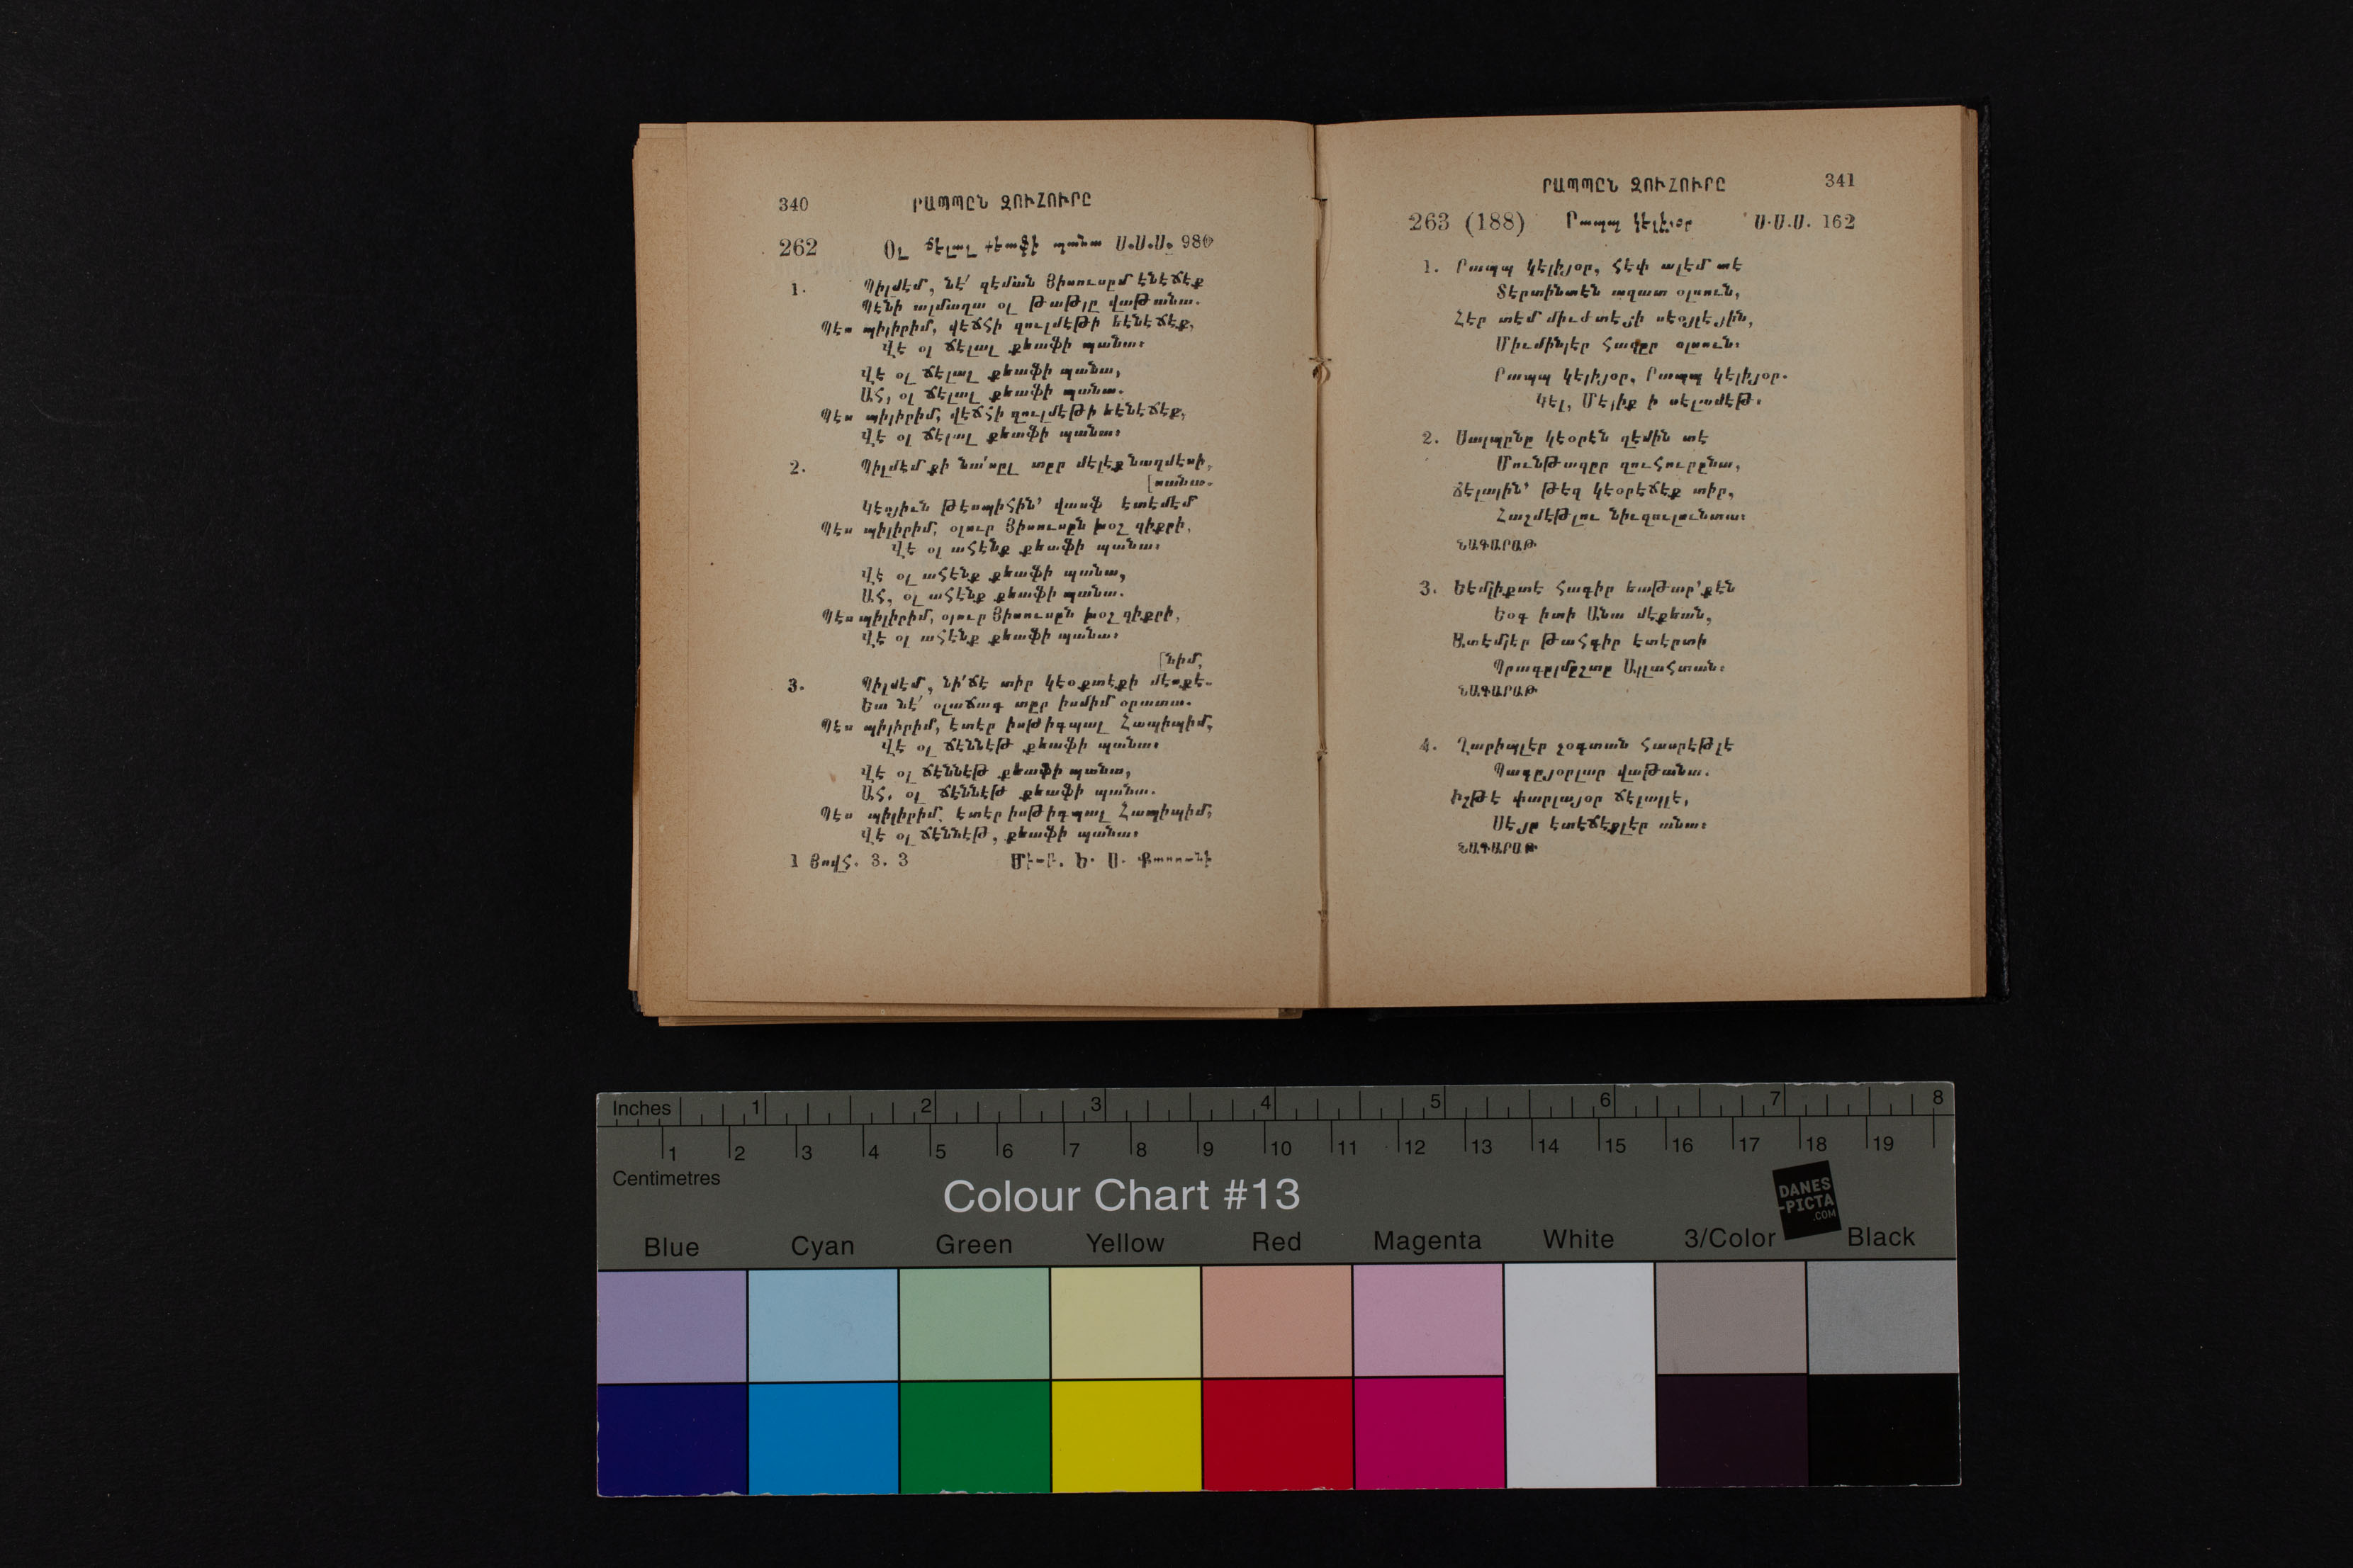 340 ՐԱՊՊԸՆ ԶՈՒՀՈՒՐԸ
262 Օլ ճելալ քեաֆի պանա Ս.Ս.Ս. 980
1. Պիլմէմ, նէ՛ զէման Յիսուսըմ էնէճէք
Պէնի ալմաղա օլ Թաթլը վաթանա.
Պէս պիլիրիմ, վէճհի զուլմէթի եէնէճէք,
Վէ օլ ճելալ քեաֆի պանա։
Վէ օլ ճելալ քեաֆի պանա,
Ահ, օլ ճելալ քեաֆի պանա.
Պէս պիլիրիմ, վէճհի զուլմէթի եէնէճէք,
Վէ օլ ճելալ քեաֆի պանա։
2. Պիլմէմ քի նա՛սըլ տըր մէլէք նաղմէսի,
[սանա.
Կէօյիւն թէսպիհին՚ վասֆ էտէմէմ
Պէս պիլիրիմ, օլուր Յիսուսըն խօշ զիքրի,
Վէ օլ ահէնք քեաֆի պանա։
Վէ օլ ահէնք քեաֆի պանա,
Ահ, օլ ահէնք քեաֆի պանա.
Պէս պիլիրիմ, օլուր Յիսուսըն խօշ զիքրի,
Վէ օլ ահէնք քեաֆի պանա։
[նիմ,
3. Պիլմէմ, նի՛ճէ տիր կէօքտէքի մէսքէ-
Եա նէ՛ օլաճագ տըր իսմիմ օրատա.
Պէս պիլիրիմ, էտէր իսթիգպալ Հապիպիմ,
Վէ օլ ճէննէթ քեաֆի պանա։
Վէ օլ ճէննէթ քեաֆի պանա,
Ահ, օլ ճէննէթ քեաֆի պանա.
Պէս պիլիրիմ, էտէր իսթիգպալ Հապիպիմ,
Վէ օլ ճէննէթ, քեաֆի պանա։
1 Յովհ. 3. 3
ՐԱՊՊԸՆ ԶՈՒՀՈՒՐԸ 341
263 (188) Րապպ կէլիյօր Ս.Ս.Ս. 162
1. Րապպ կէլիյօր, հէփ ալէմ տէ
Տէրտինտէն ազատ օլսուն,
Հէր տէմ միւժտէյի սէօյլէյին,
Միւմինլէր հազըր օլսուն։
Րապպ կէլիյօր, Րապպ կէլիյօր.
Կէլ, Մէլիք ի սէլամէթ։
2. Սալպընը կէօրէն զէմին տէ
Մունթազըր զուհուրընա,
ճէլալին՚ թէզ կէօրէճէք տիր,
Հաշմէթլու նիւզուլունտա։
ՆԱԳԱՐԱԹ
3. Եէմլիքտէ հագիր եաթար՚քէն
Եօգ իտի Անա մէքեան,
Ատէմլէր թահգիր էտէրտի
Պրագըլմըշտը Ալլահտան։
ՆԱԳԱՐԱԹ
4. Ղարիպլէր չօգտան հասրէթլէ
Պագըյօրլար վաթանա.
Իշթէ փարլայօր ճէլալլէ,
Սէյր էտէճէքլէր անա։
ՆԱԳԱՐԱԹ
Inches 1 2 3 4 5 6 7 8
1 2 3 4 5 6 7 8 9 10 11 12 13 14 15 16 17 18 19
Centimetres
Colour Chart #13
DANES
-PICTA
.COM
Blue Cyan Green Yellow Red Magenta White 3/Color Black